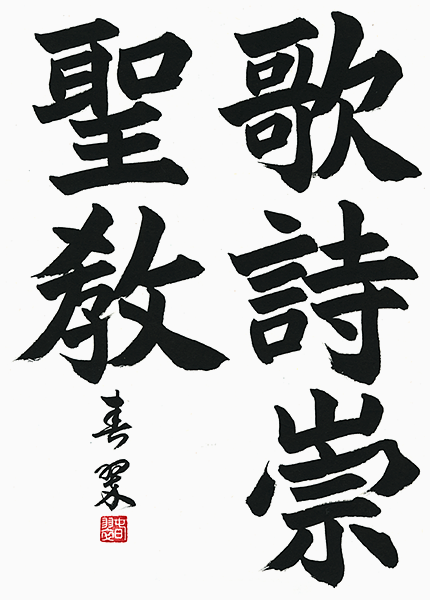 歌詩崇
聖教
春翠